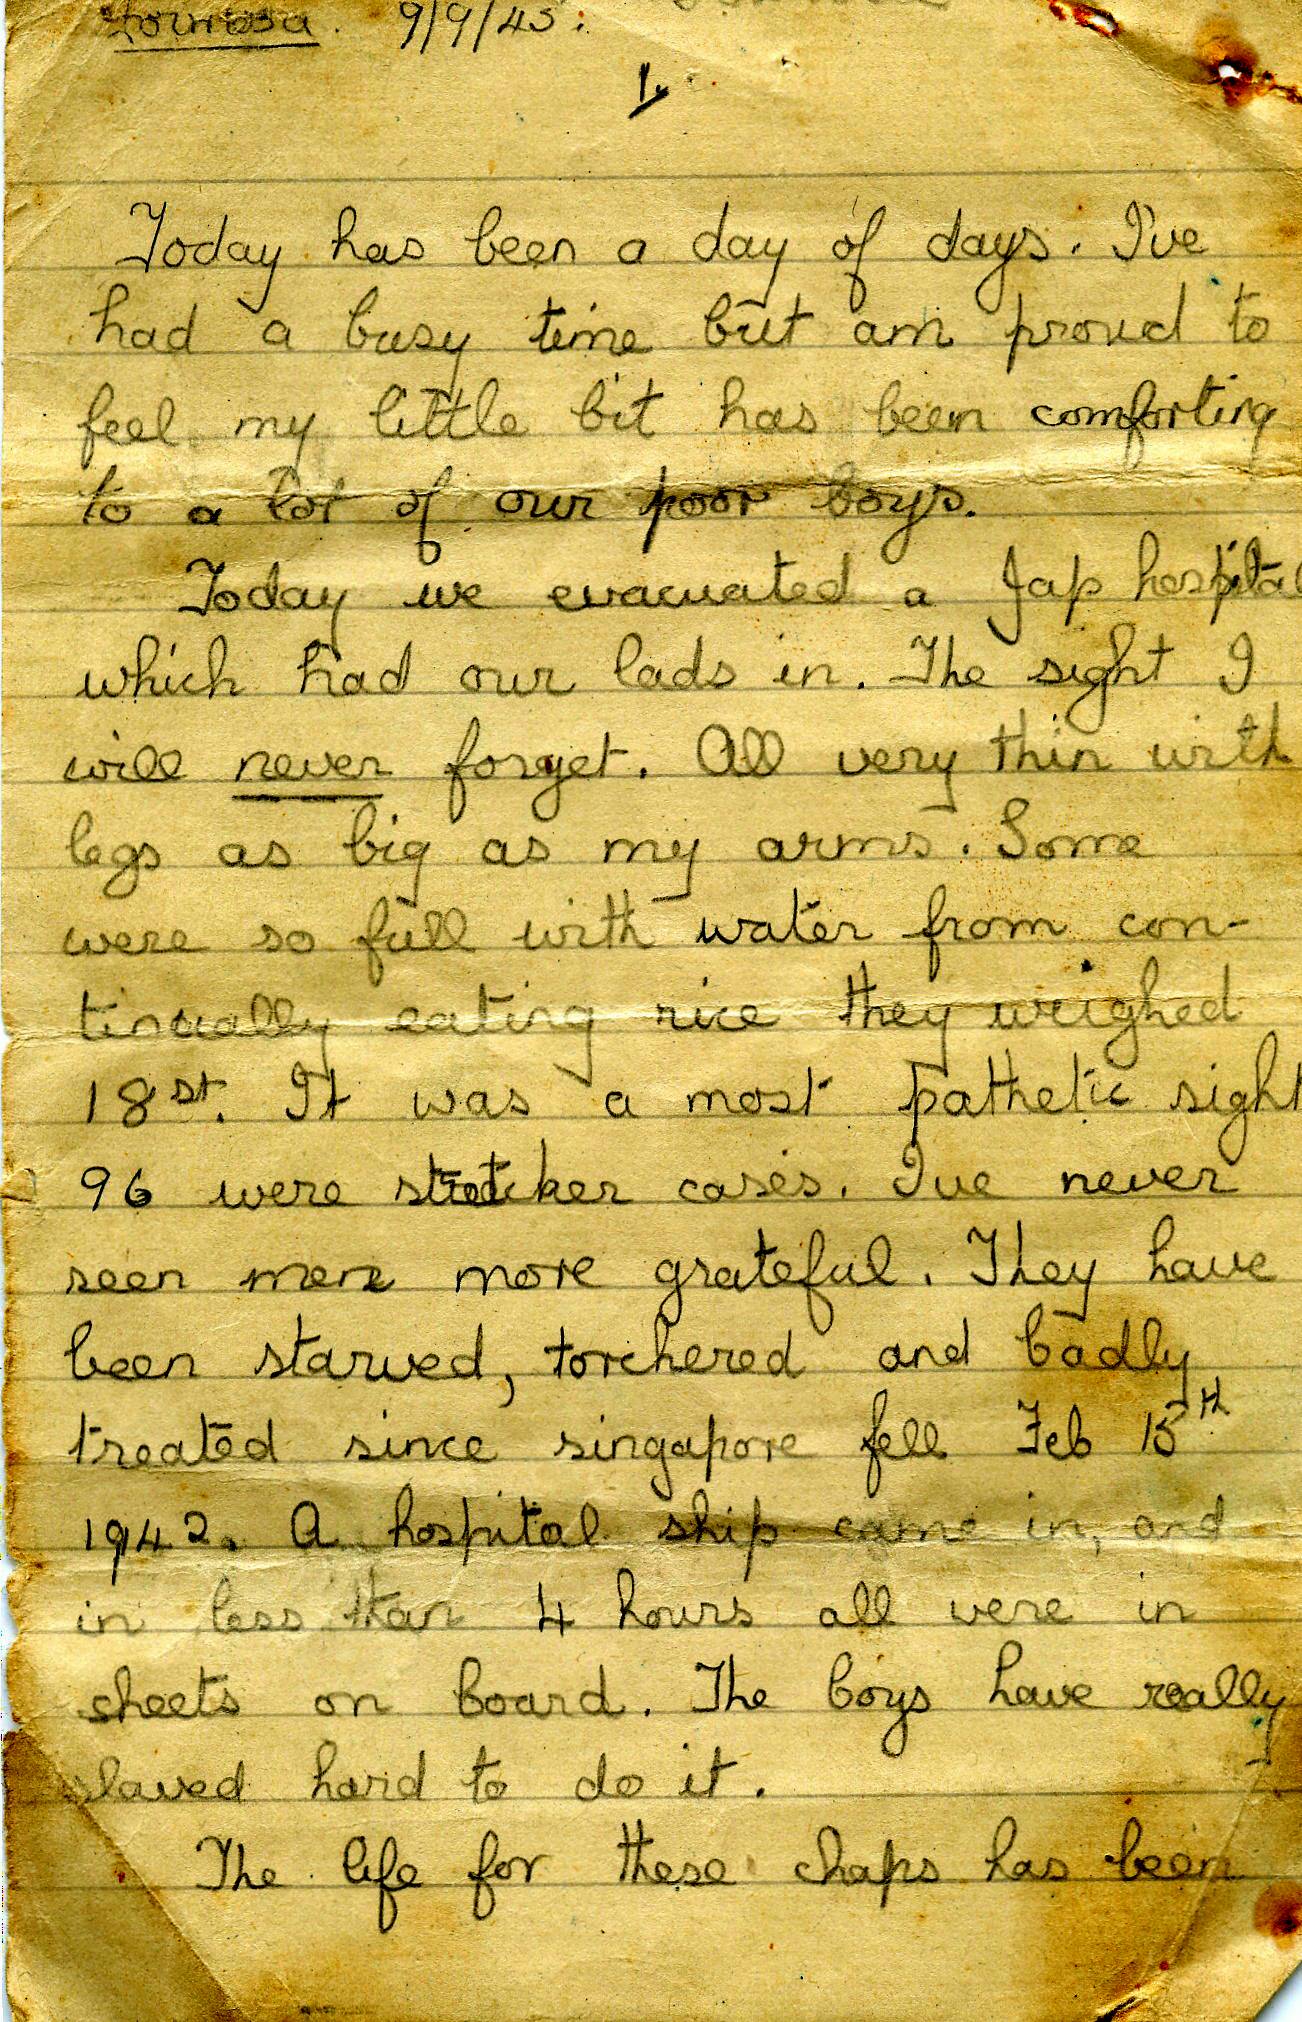 Formosa. 9/9/45.
1.
Today has been a day of days. I've
had a busy time but am proud to
feel my little bit has been comforting
to a lot of our poor boys.
Today we evacuated a Jap hospital
which had our lads in. The sight I
will never forget. All very thin with
legs as big as my arms. Some
were so full with water from con-
tinually eating rice they weighed
18st. It was a most pathetic sight
96 were stretcher cases. I've never
seen men more grateful. They have
been starved, torchered and badly
treated since singapore fell Feb 15th
1942. A hospital ship came in, and
in less than 4 hours all were in
sheets on board. The boys have really
slaved hard to do it.
The life for these chaps has been